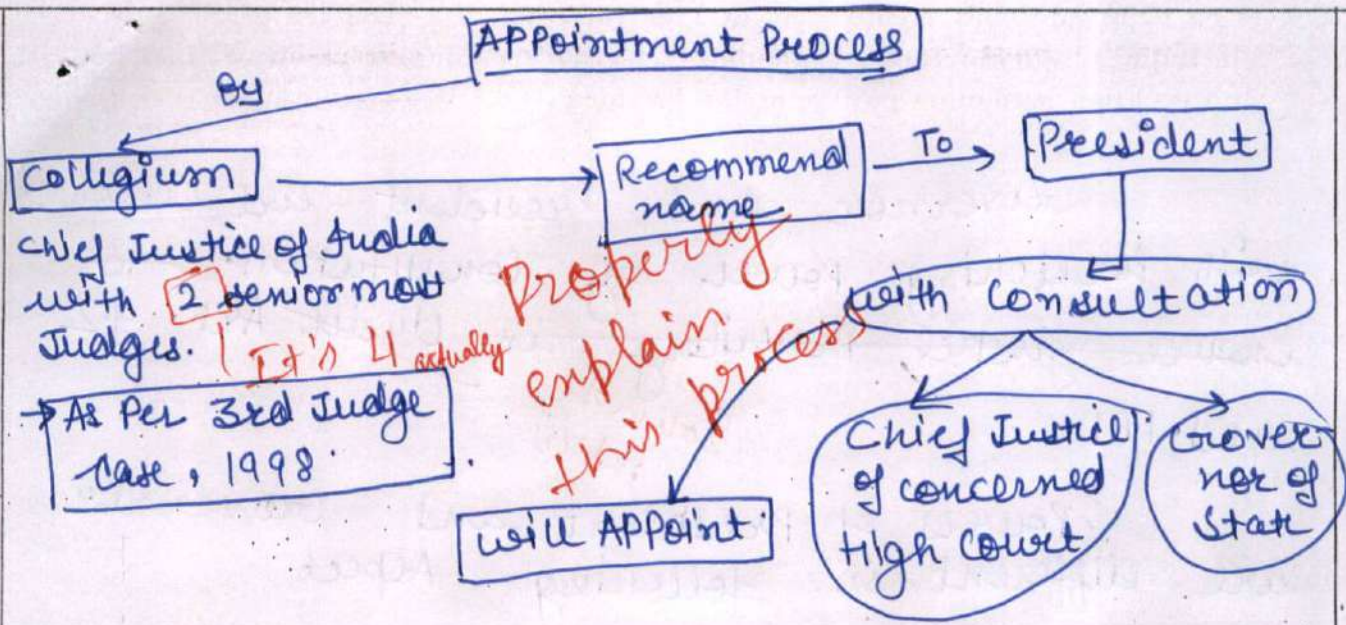 APPointment Process
By
Collegium
Recommend
name
To
President
Chief Justice of India
with 2 senior most
Judges.
It's 4 actually
→ As Per 3rd Judge
Case, 1998.
Properly
explain
this process
with Consultation
Chief Justice
of concerned
High Court
Gover-
nor of
State
will APPoint.